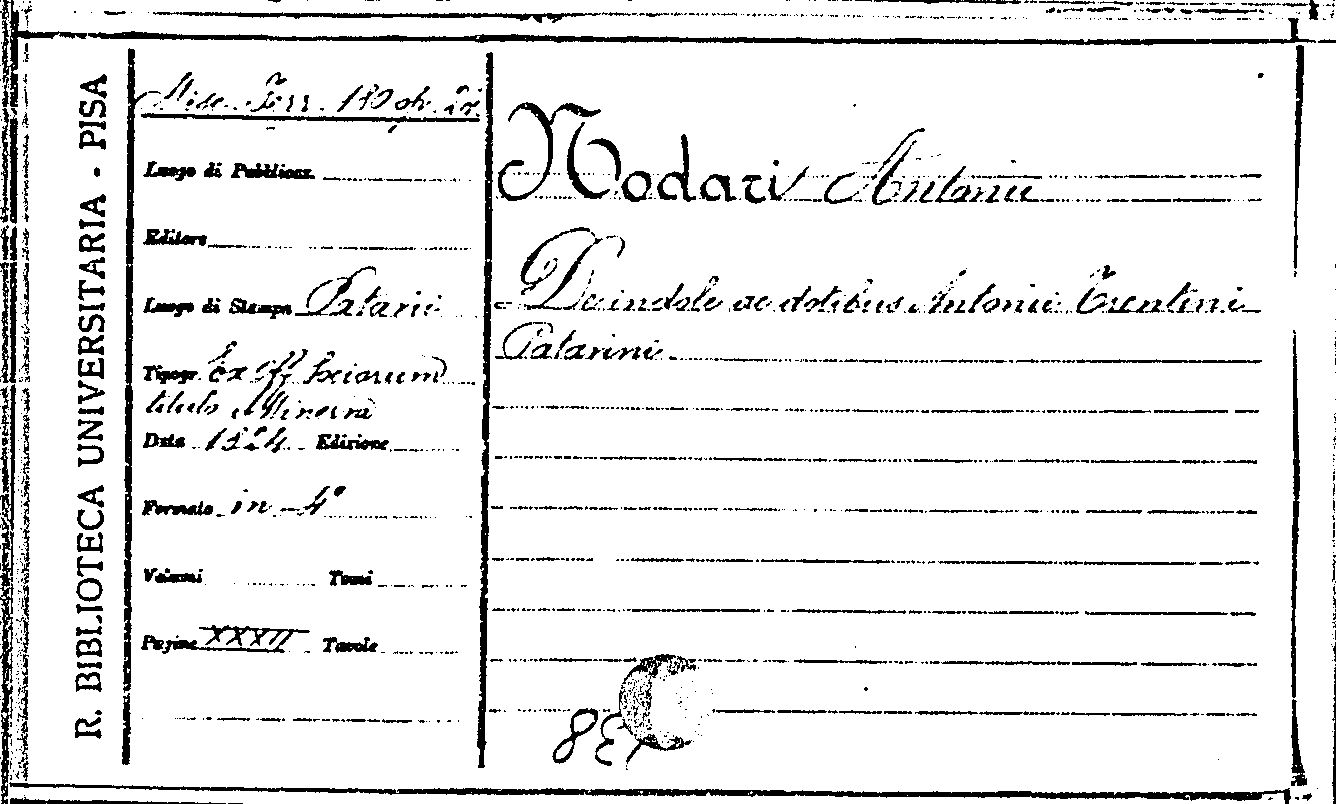 R. BIBLIOTECA UNIVERSITARIA - PISA
Misc. Ferr. 180 
Luogo di Pubblicaz.
Editore
Luogo di Stampa Patavii
Tipogr. Ex off. Sociorum
titulo Minerva
Data 1824 Edizione
Formato in-4°
Volumi Tomi
Pagine XXXII Tavole
Nodari Antonii
De indole ac dotibus Antonii Trentini
Patavini.